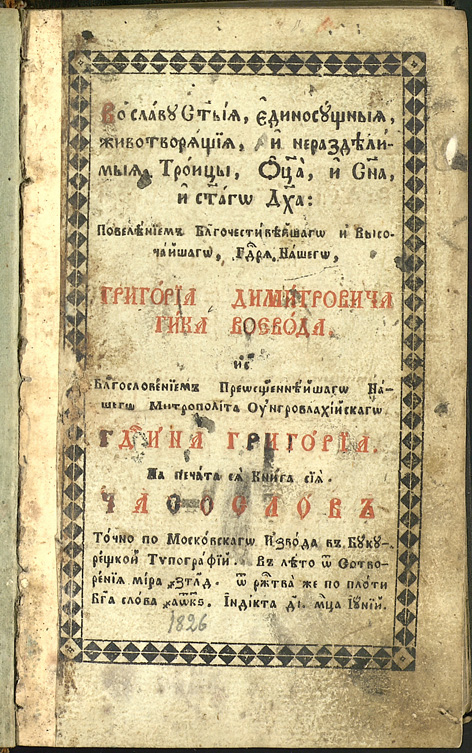 Во славу Ст҃ы́ѧ, є҆диносу́щныѧ,
животворѧ́щїѧ, и҆ неразⸯдѣли́-
мыѧ Трⷪ҇ицы, Ѻ҆ц҃а̀, и҆ Сн҃а,
и҆ ст҃а́гѡ Дх҃а:
Повелѣ́нїемъ Бл҃гочести́вѣйшагѡ и҆ Высо-
ча́йшагѡ, Гдⷭ҇рѧ На́шегѡ,
ГРИГО́РЇА ДИМИ́ТРОВИЧА
ГИ́КА ВОЕВО́ДА.
и҆
Бл҃гослове́нїемъ Преѡсщ҃е́ннѣйшагѡ На́-
шегѡ Митрополі́та Оу҆нгровлахі́йскагѡ
ГДⷭ҇И́НА ГРИГО́РЇА.
На печа́та сѧ̀ Кни́га сїѧ̀.
ЧАСОСЛО́ВЪ
То́чно по Моско́вскагѡ И҆зво́да въ Буку-
ре́щкой Тѵпогра́фїй. Въ лѣ́то ѿ Сотво-
ре́нїѧ мі́ра ҂зтл҃д. ѿ рж҃тва́ же по пло́ти
Бг҃а сло́ва ҂аѿк҃ѕ. І҆ндї́кта д҃і. мц҃а І҆ꙋ́нїй.
1826